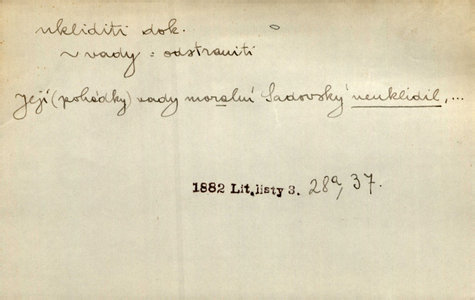 ukliditi dok.
~ vady : odstraniti
Její (pohádky) vady moralní Sadovský neuklidil, ...
1882 Lit. listy 3. 28a, 37.